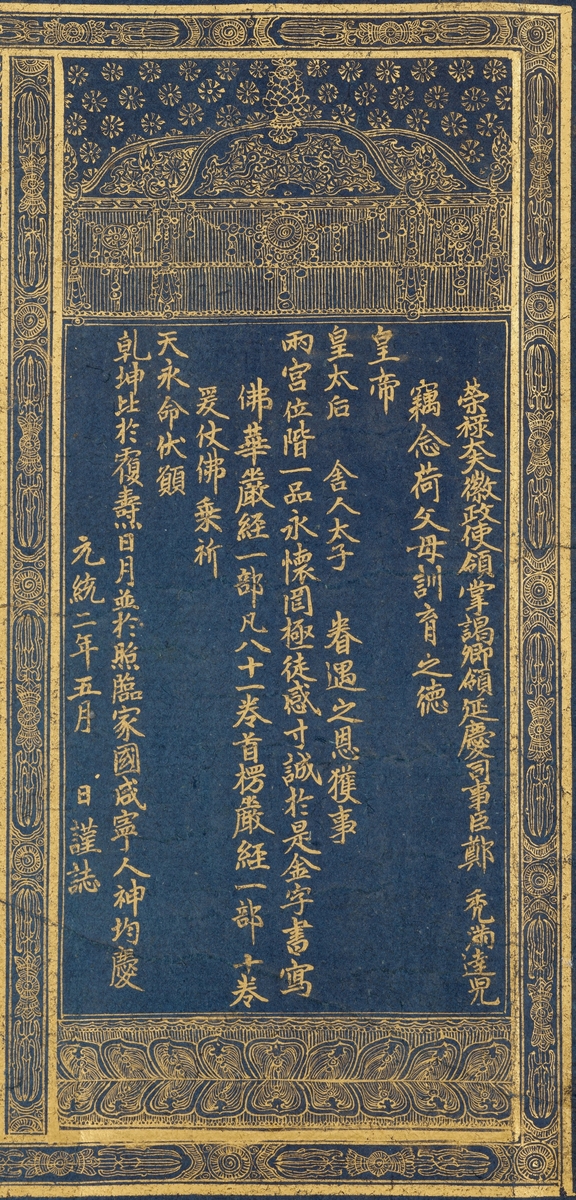 榮禄大夫徽政使領掌謁卿領延慶司事臣鄭 禿滿達兒
竊念荷父母訓育之德
皇帝
皇太后 舍人太子 眷遇之恩獲事
兩宮位階一品永懷罔極徒感寸誠於是金字書寫
佛華嚴経一部凡八十一卷首楞嚴経一部十卷
爰仗佛乗祈
天永命伏願
乾坤比於覆燾日月並於照臨家國咸寧人神均慶
元統二年五月 日謹誌